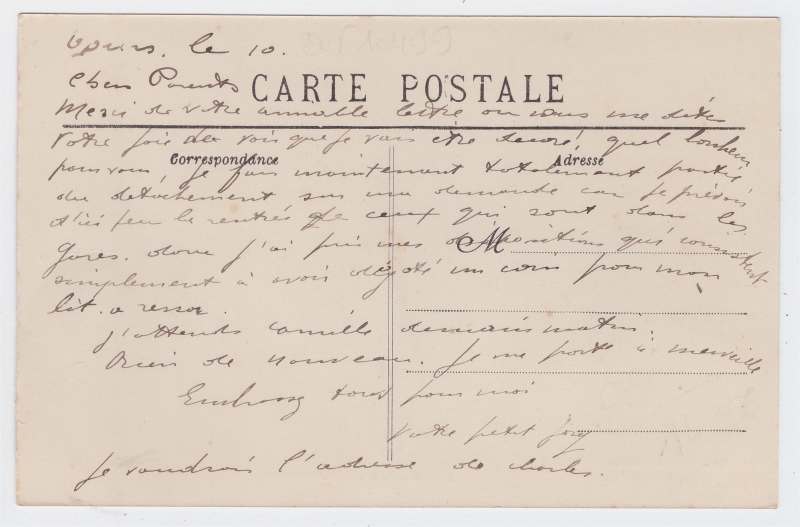 le 10.
Chers Parents
CARTE POSTALE
Merci de votre aimable lettre ou vous me dites
Votre joie de voir que je vais être decoré, quel bonheur
Correspondance
Adresse
pour vous, je fais maintenant totalement partie
du détachement sur ma demande car je prévois
d'ici peu la rentrée de ceux qui sont dans les
M
gares. donc j'ai pris mes dispositions qui consistent
simplement à avoir dégoté un coin pour mon
lit. a ressor.
J'attends Camille demain matin.
Rien de nouveau. Je me porte à merveille
Embrassez tous pour moi
Votre petit
Je voudrais l'adresse de Charles.